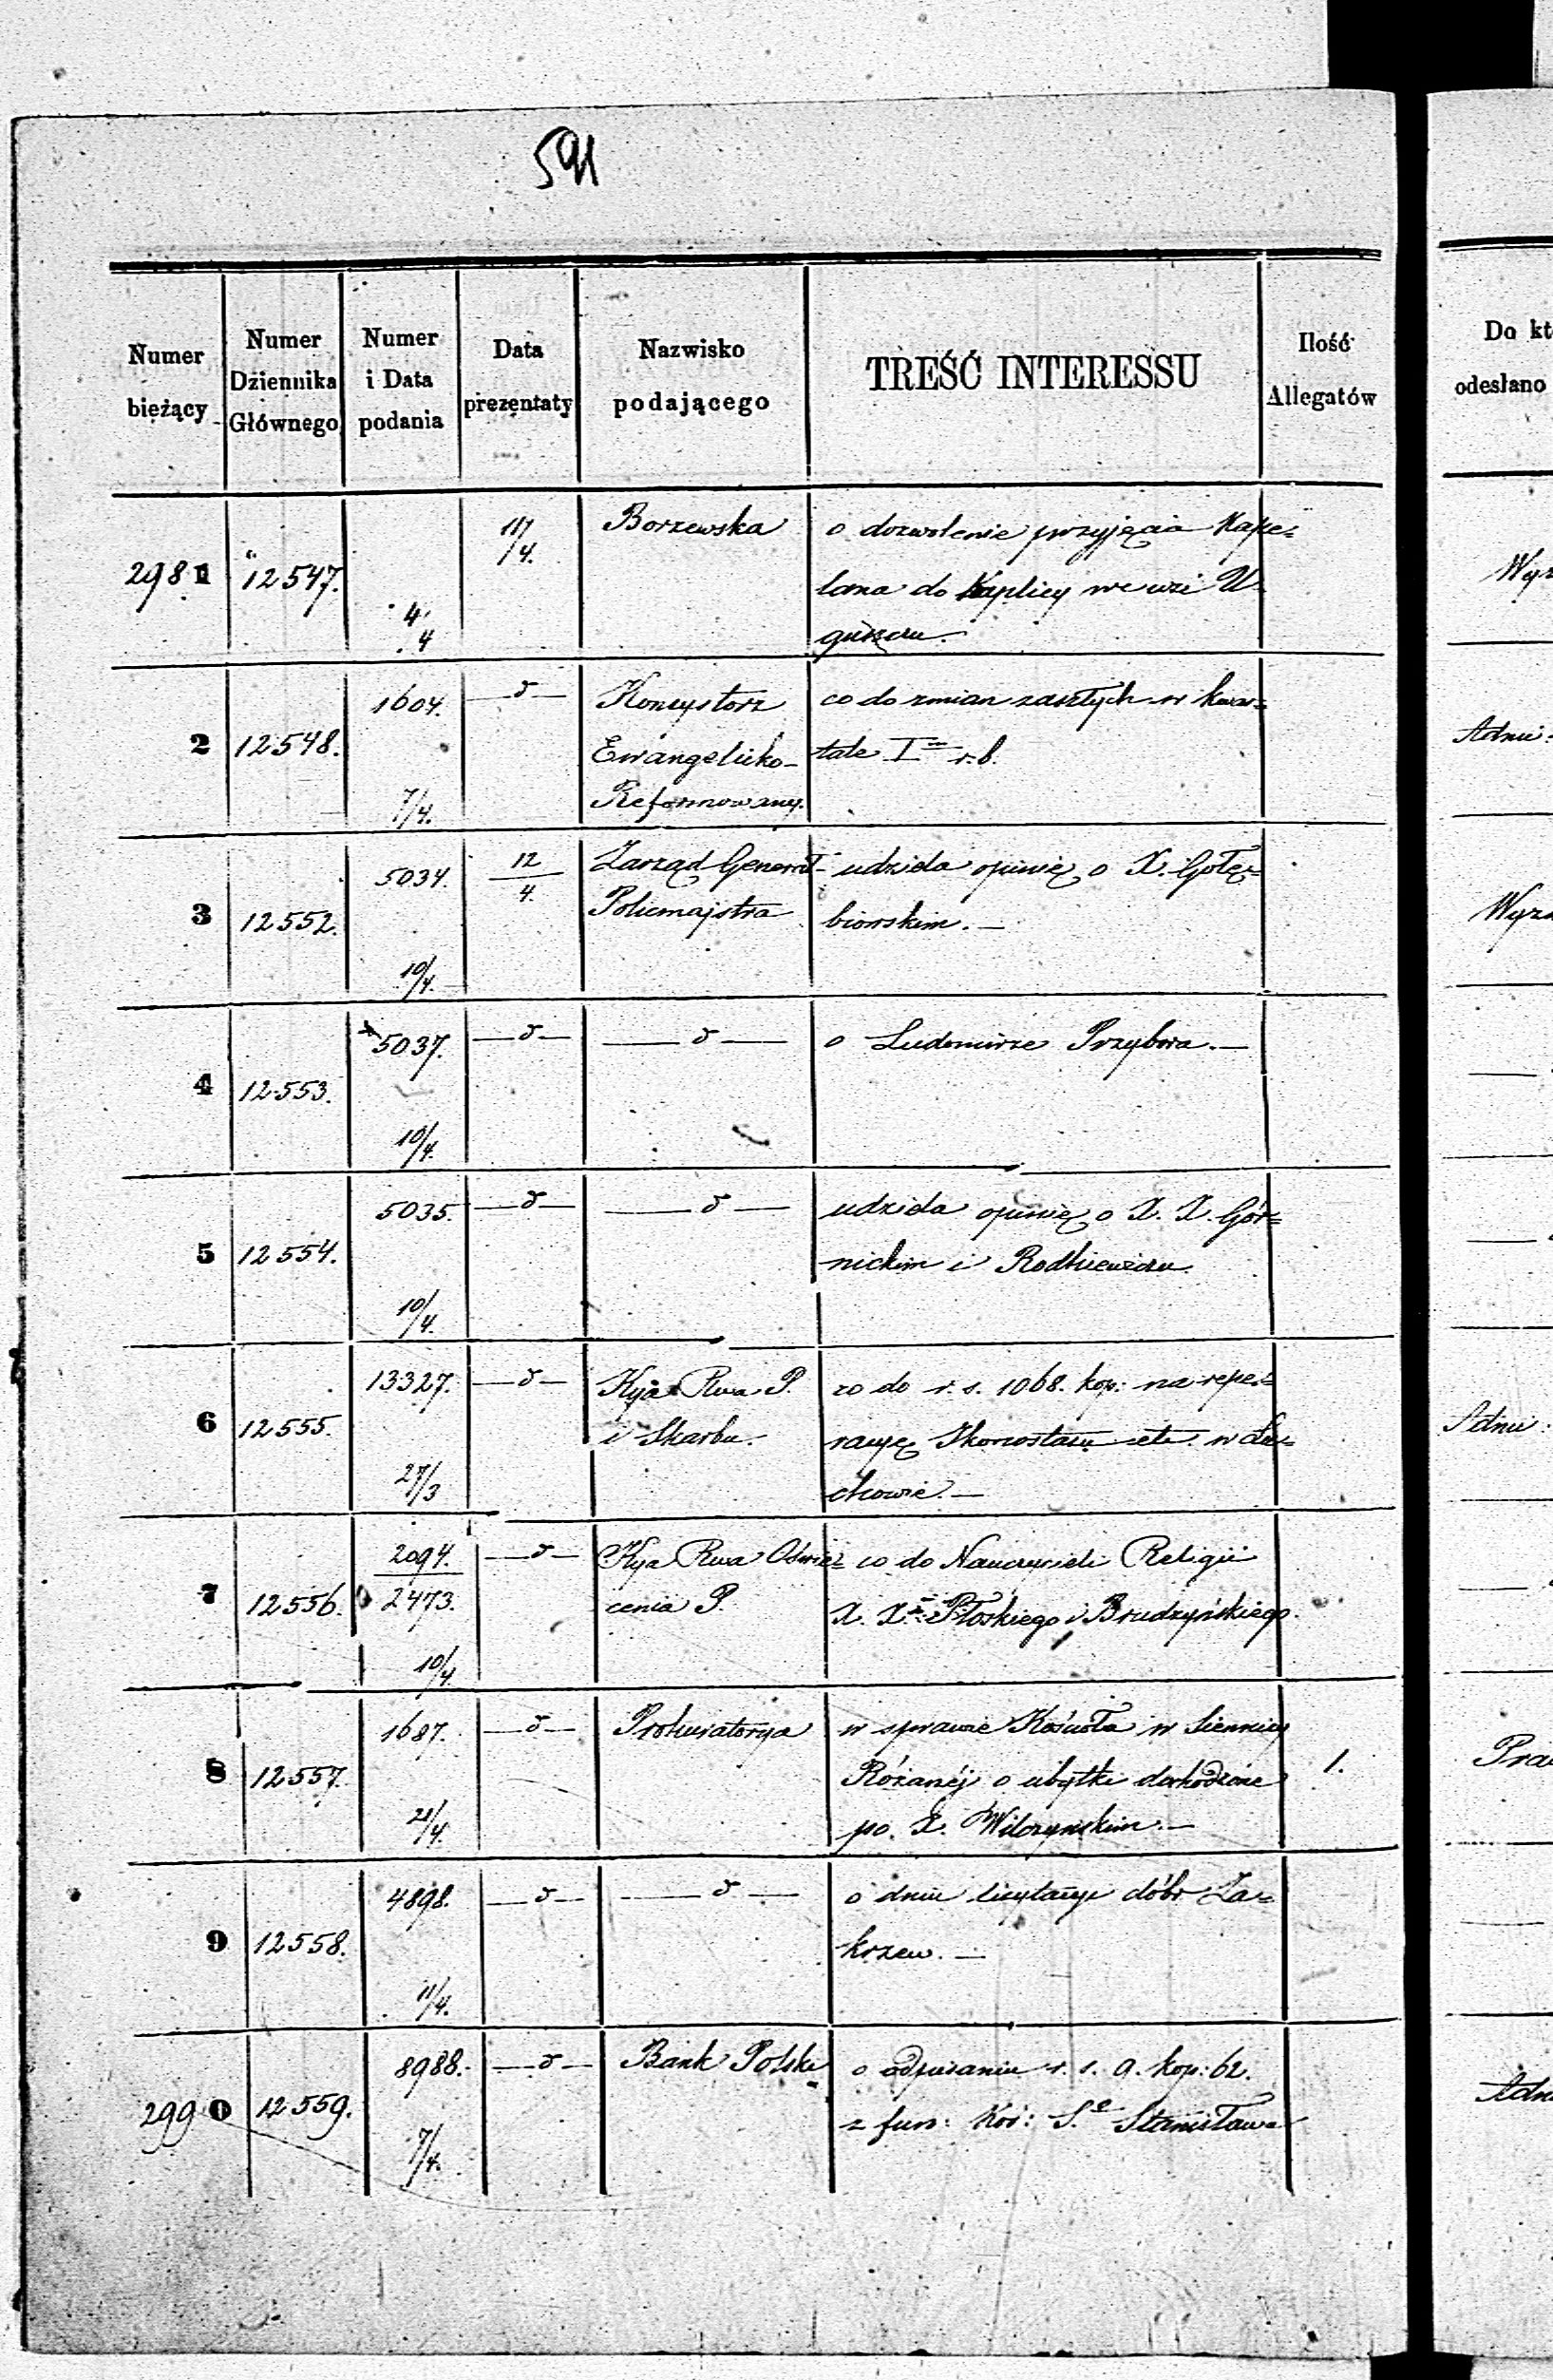 591
Numer bieżący | Numer Dziennika Głównego | Numer i Data podania | Data prezentaty | Nazwisko podającego | TREŚĆ INTERESSU | Ilość Allegatów | Do kt odesłano
2981 | 12547. | 4/4 | 11/4. | Borzewska | o dozwolenie przyjęcia Kape=
lana do Kaplicy we wsi U-
guszczu. | Wyz
2 | 12548. | 1604. 7/4. | —d— | Konsystorz | co do zmian zaszłych w kwar=
Ewangelicko- | tale I r.b. | Adnu:
Reformowany.
3 | 12552. | 5034. 10/4. | 12/4. | Zarząd Generał- | udziela opinię o X. Gołę=
Policmajstra | biowskim.— | Wyzn
4 | 12553. | 5037. 10/4. | —d— | —d— | o Ludomirze Przybora.—
5 | 12554. | 5035. 10/4. | —d— | —d— | udziela opinię o X. X. Gór=
nickim i Rodkiewiczu.
6 | 12555. | 13327. 27/3 | —d— | Kya Rwa P. | co do r. s. 1068. kop: na repe=
i Skarbu. | racyę Ikonostasu etc. w Łu=
chowie.— | Adnu:
7 | 12556. | 2094. 2473. 10/4. | —d— | Kya Rwa Oświe= | co do Nauczycieli Religii
cenia P. | X. X. Płoskiego i Brudzyńskiego.
8 | 12557. | 1687. 21/4. | —d— | Prokuratorya | w sprawie Kościoła w Siennicy | 1. | Pra
Różanéj o ubytki dochodzone
po. X. Wilczynskim.—
9 | 12558. | 4898. 11/4. | —d— | —d— | o dniu licytacyi dóbr Za=
krzew.—
2990 | 12559. | 8988. 7/4. | —d— | Bank Polski | o odpisaniu r. s. 9. kop: 62.
z fun: Koś: S.o Stanisława | Adn